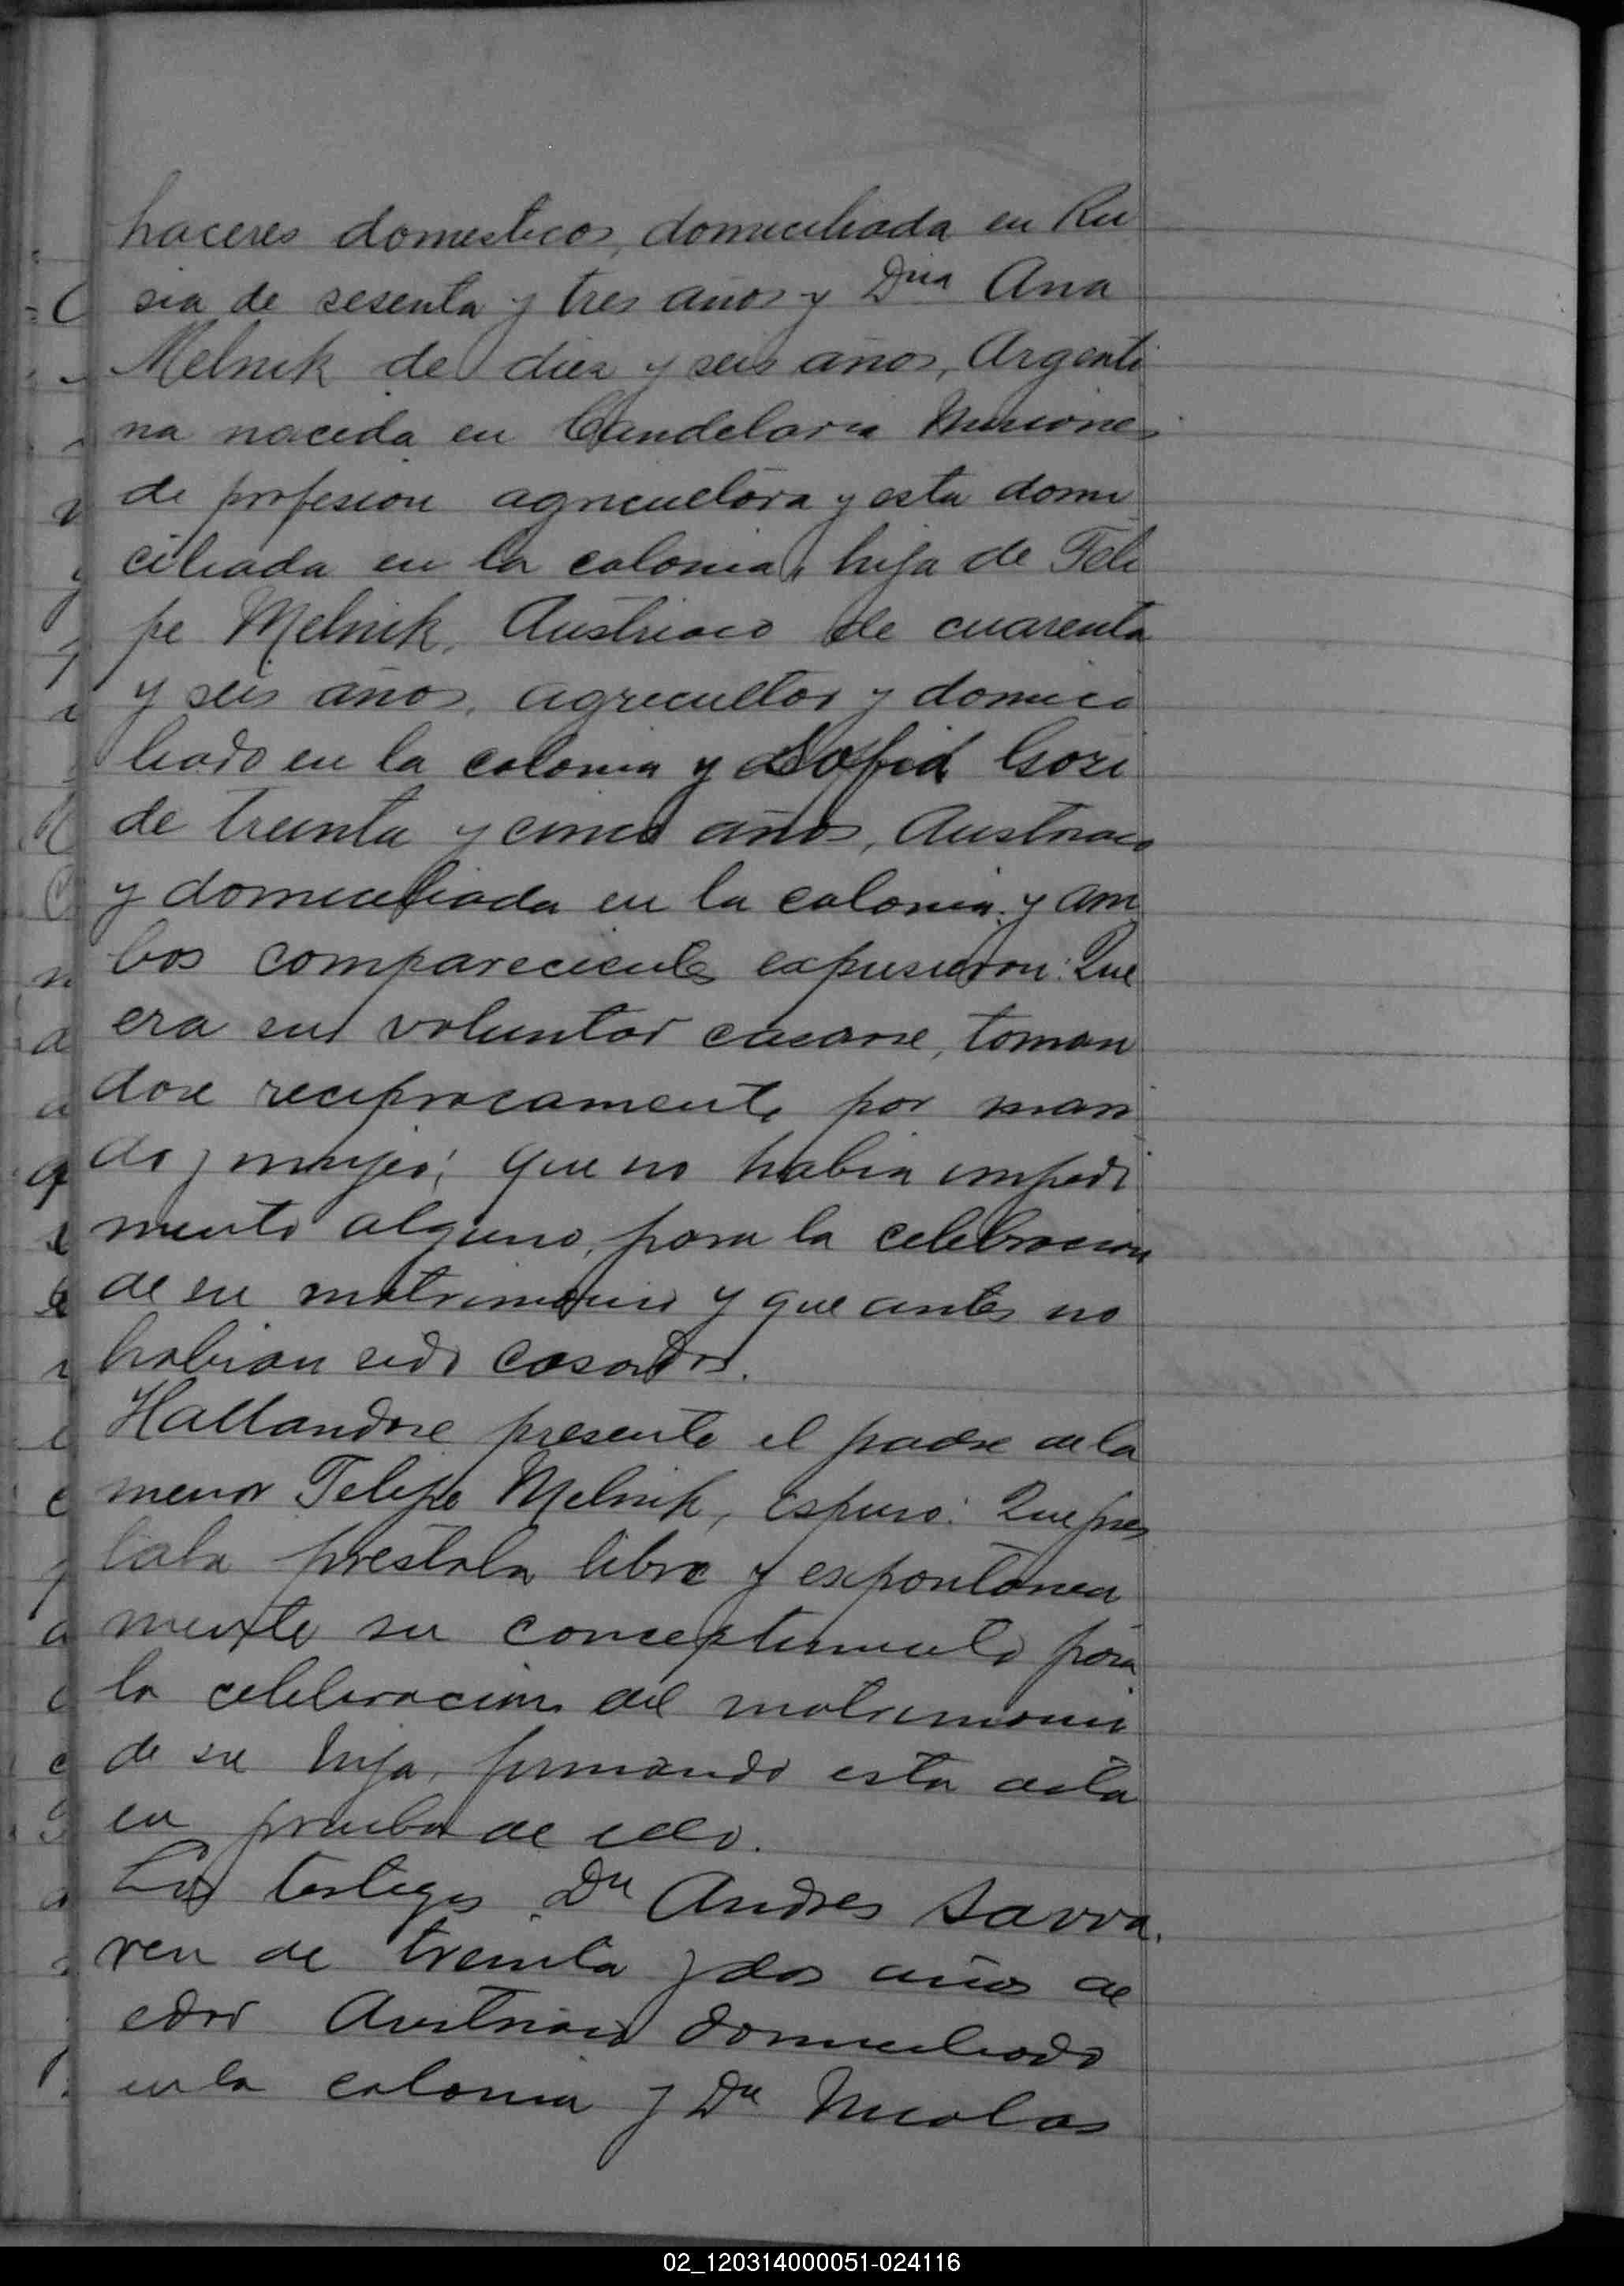 haceres domesticos, domiciliada en Ru
sia de sesenta y tres años y Dña Ana
Melnik de diez y seis años, Argenti
na nacida en Candelaria Misiones
de profesion agricultora y esta domi
ciliada en la colonia, hija de Feli
pe Melnik, Austriaco de cuarenta
y seis años, agricultor y domici
liado en la colonia y Sofia
de treinta y cinco años, Austriaca
y domiciliada en la colonia y am
bos comparecientes expusieron: Que
era su voluntad casarse, toman
dose reciprocamente por mari
do y mujer; que no habia impedi
mento alguno, para la celebracion
de su matrimonio y que antes no
habian sido casados.
Hallandose presente el padre de la
menor Felipe Melnik, espuso: Que pres
taba prestaba libre y expontanea
mente su para
la celebracion del matrimonio
de su hija, firmando esta acta
en prueba de ello.
Los testigos Dn Andres Savva
ren de treinta y dos años de
edad Austriaco domiciliado
en la colonia y Dn Nicolas
02_120314000051-024116